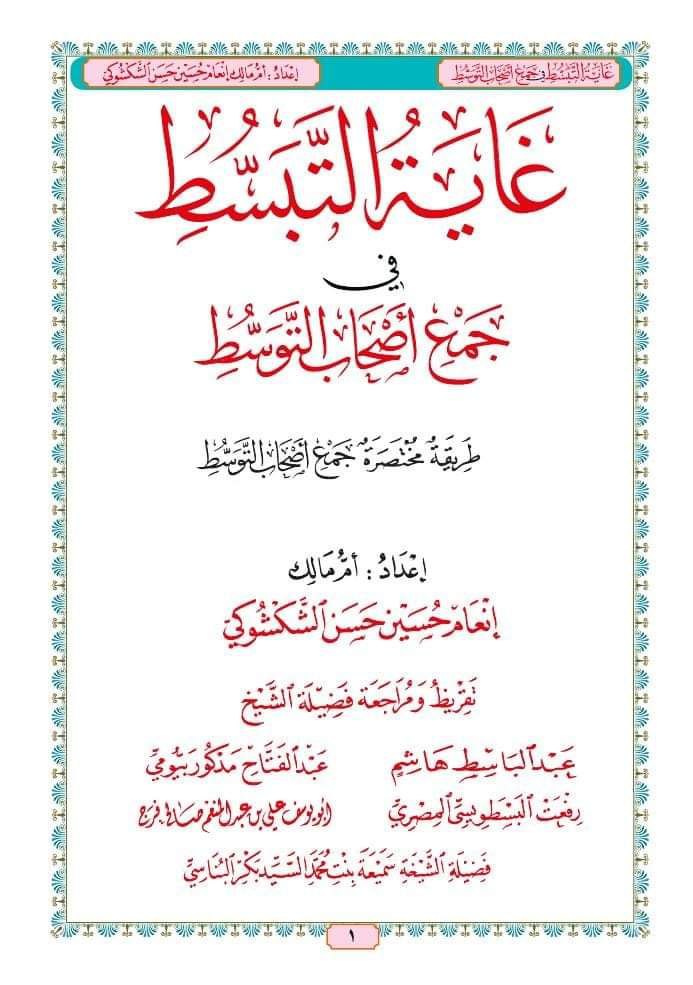 غَايَةُ التَّبَسُّطِ فِي جَمْعِ أَصْحَابِ التَّوَسُّطِ
إعْدَادُ : أمّ مَالِك إنْعَام حُسَيْن حَسَن الشَّكْشُوكِيّ
غَايَةُ التَّبَسُّطِ
فِي
جَمْعِ أَصْحَابِ التَّوَسُّطِ
طَرِيقَةٌ مُخْتَصَرَةٌ جَمْعِ أَصْحَابِ التَّوَسُّطِ
إعْدَادُ : أمُّ مَالِك
إنْعَام حُسَيْن حَسَن الشَّكْشُوكِيّ
تَقْرِيظُ وَمُرَاجَعَة فَضِيلَة الشَّيْخ
عَبْد البَاسِطِ هَاشِمٍ
عَبْد الفَتَّاحِ مَدْكُور بَيُّومِي
رِفْعَتْ البَسْطَوِيسِيّ المِصْرِيّ
أبو يوسف علي بن عبد المنعم صالح فرج
فَضِيلَةِ الشَّيْخَةِ سَمِيعَة بِنْتِ مُحَمَّد السَّيِّد بَكْر البُنَاسِيّ
١